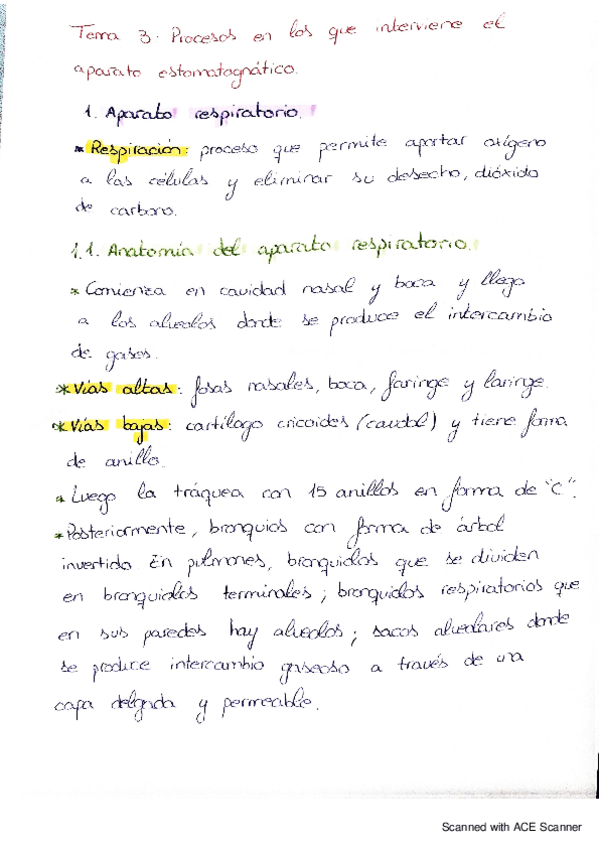 Tema 3. Procesos en los que interviene el
aparato estomatognático.
1. Aparato respiratorio.
* Respiración: proceso que permite aportar oxígeno
a las células y eliminar su desecho, dióxido
de carbono.
1.1. Anatomía del aparato respiratorio.
* Comienza en cavidad nasal y boca y llega
a los alveolos donde se produce el intercambio
de gases.
* Vías altas: fosas nasales, boca, faringe y laringe.
* Vías bajas: cartílago cricoides (caudal) y tiene forma
de anillo.
* Luego la tráquea con 15 anillos en forma de "C".
* Posteriormente, bronquios con forma de árbol
invertido En pulmones, bronquiolos que se dividen
en bronquiolos terminales; bronquiolos respiratorios que
en sus paredes hay alveolos; sacos alveolares donde
se produce intercambio gaseoso a través de una
capa delgada y permeable.
Scanned with ACE Scanner